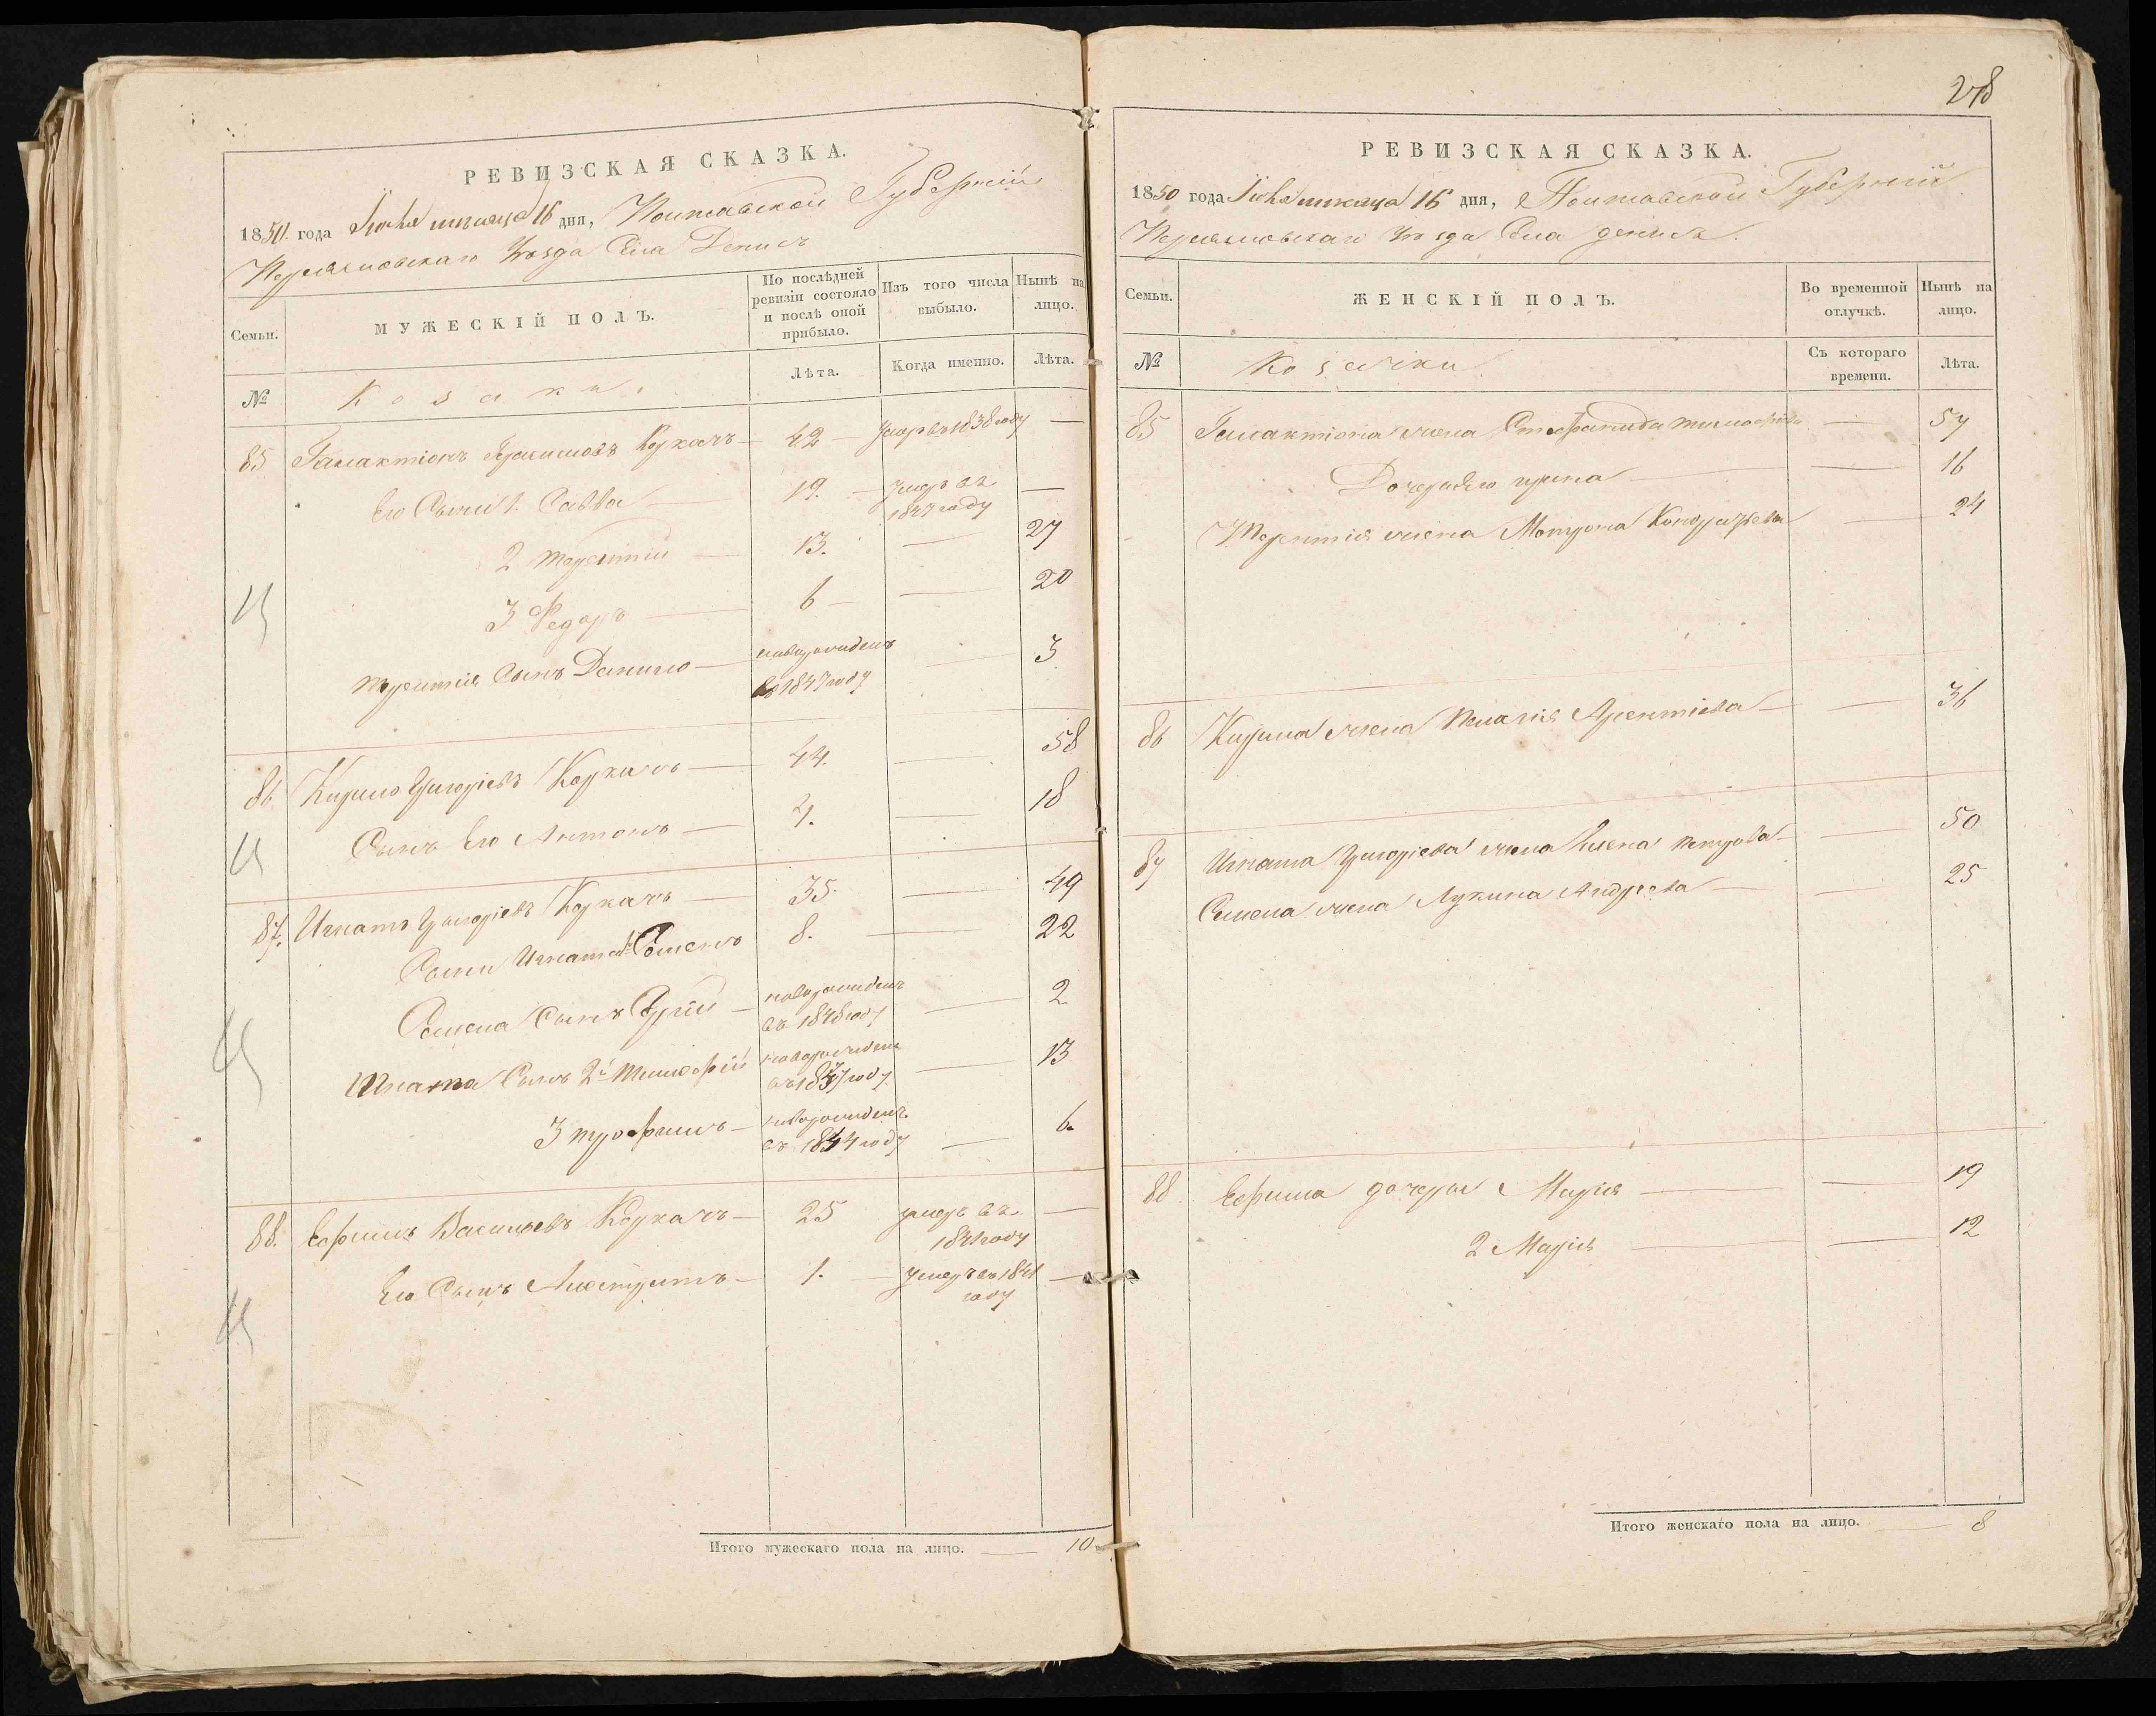 РЕВИЗСКАЯ СКАЗКА.
1850 года мѣсяца 16 дня, Полтавской Губерніи
Переяславскаго Уѣзда Села Денисъ
Семьи.
МУЖЕСКІЙ ПОЛЪ.
По послѣдней ревизіи состояло и послѣ оной прибыло.
Изъ того числа выбыло.
Нынѣ на лицо.
№
Козаки.
Лѣта.
Когда именно.
Лѣта.
85 Галактіонъ Коркачъ 42 умеръ въ 1838 году —
Его Сыны 1. Савва 19. умеръ въ 1847 году —
2 Терентій 13. — 27
3 Федоръ 6 — 20
Терентія Сынъ Данило новорожденъ въ 1847 году — 3
86 Кирило Григоріевъ Коркачъ 44. — 58
Сынъ Его Антонъ 4. — 18
87. Игнатъ Григоріевъ Коркачъ 35. — 49
Сыны Игната 1 Семенъ 8. — 22
Семена Сынъ новорожденъ въ 1848 году — 2
Игната Сынъ 2й Тимофій новорожденъ въ 1837 году — 13
3 Трофимъ новорожденъ въ 1844 году — 6.
88. Ефимъ Васильевъ Коркачъ 25 умеръ въ 1841 году —
Его Сынъ 1. умеръ въ 1841 году —
Итого мужескаго пола на лицо. 10
278
РЕВИЗСКАЯ СКАЗКА.
1850 года мѣсяца 16 дня, Полтавской Губерніи
Переяславскаго Уѣзда Села Денисъ.
Семьи.
ЖЕНСКІЙ ПОЛЪ.
Во временной отлучкѣ.
Нынѣ на лицо.
№
Козачки
Съ котораго времени.
Лѣта.
85 Галактіона жена Стефанида Тимофіева — 57
Дочь его Ирина — 16
Терентія жена Мотрона Кондратьева — 24
86 Кирила жена Пелагія — 36
87 Игната Григоріева жена Елена Петрова — 50
Семена жена Лукина Андреева — 25
88 Ефима дочери Марія — 19
2 Марія — 12
Итого женскаго пола на лицо. 8